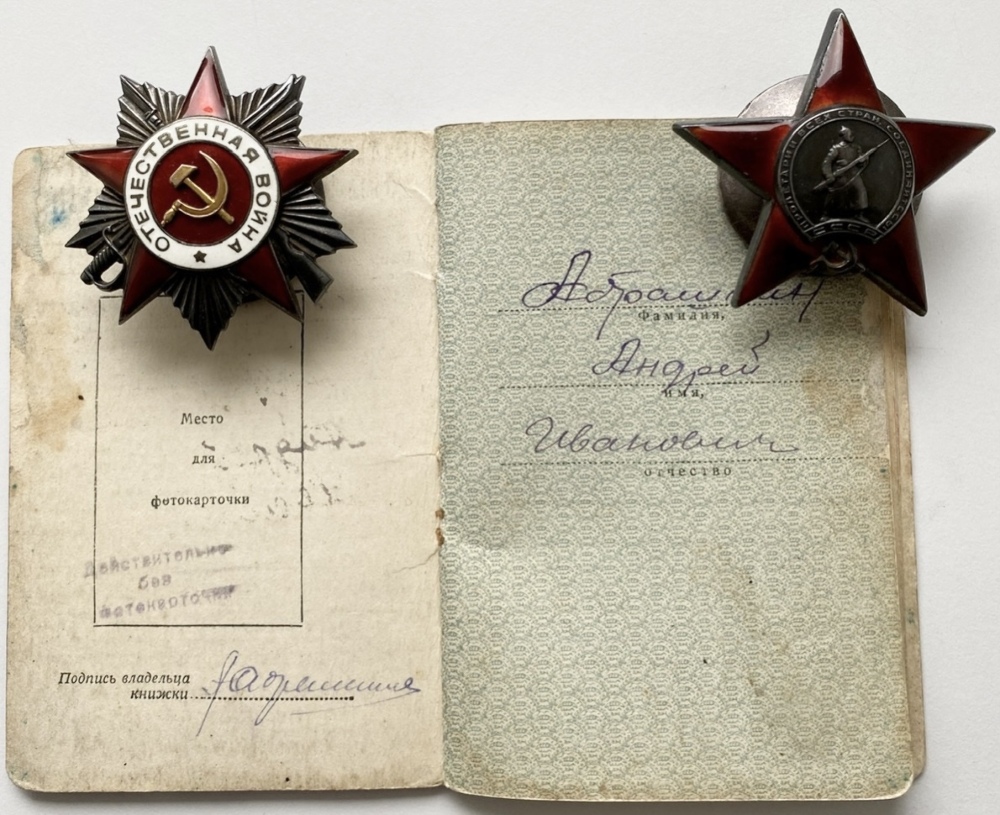 ОТЕЧЕСТВЕННАЯ ВОЙНА
ПРОЛЕТАРИИ ВСЕХ СТРАН, СОЕДИНЯЙТЕСЬ!
СССР
Место
для
фотокарточки
Действительно
без
фотокарточки
Подпись владельца
книжки
Абрашкин
Фамилия,
Андрей
имя,
Иванович
отчество